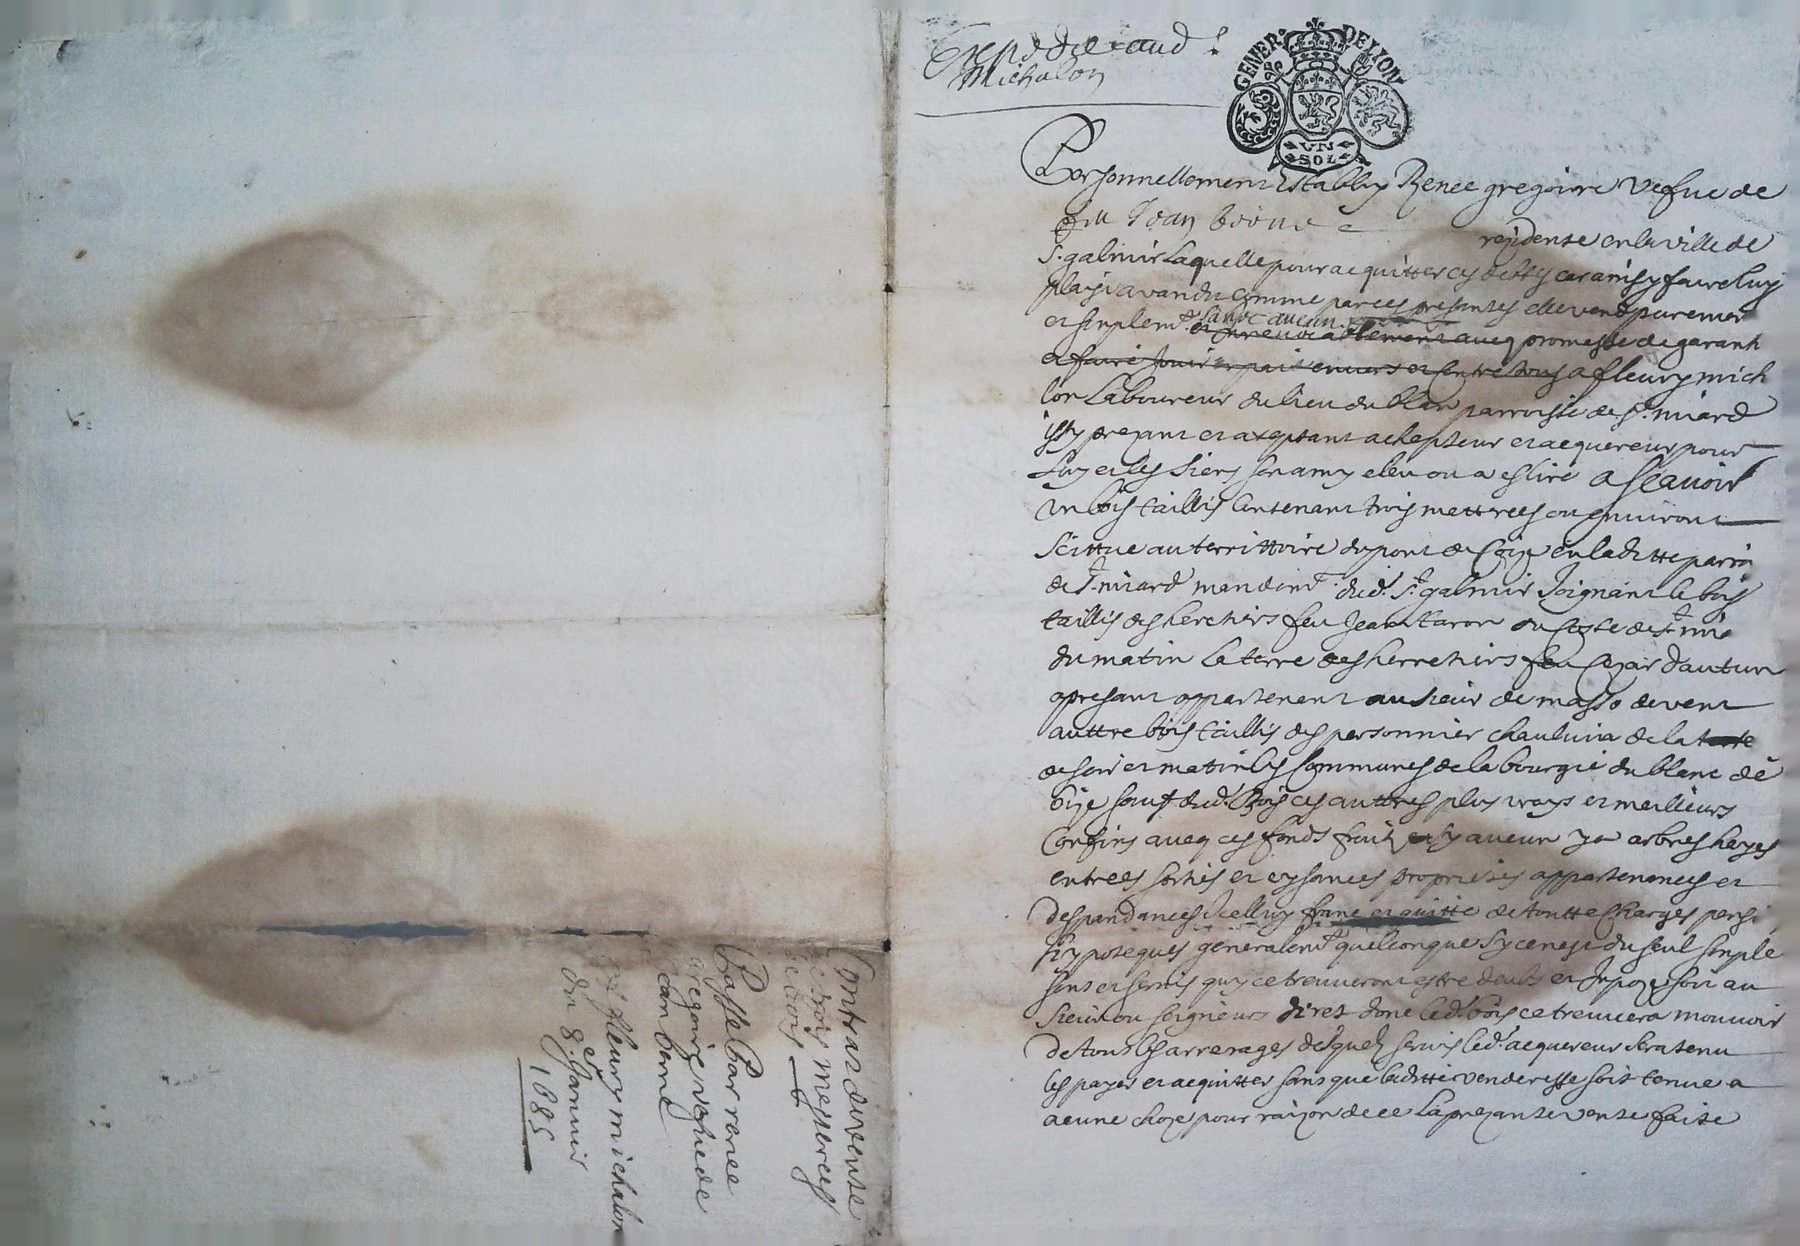 Exp.d aud.
Michalon
GENER. DE LION
UN
SOL
Personnellement Establye Renee gregoire vefue de
feu Jean residente en la ville de
St. galmir Laquelle pour acquitter ces dettes car ainsy faire luy
plaist a vandu comme par ces presantes elle vend purement
et simplemt. sans aucun
et irrevocablement avecq promesse de garant
et faire Jouir en paix envers et Contre tous a fleury mich
lon Laboureur du lieu du blan parroisse de St. miard
issy prezant et acceptant achepteur et acquereur pour
Luy et les siens son amy eleu ou a eslire a scavoir
un bois taillis Contenant trois mettrees ou environt
scittue au territtoire du pont de Coize en laditte parroi
de St. miard mandemt. dud. St. galmir Joignant le bois
taillis des herethirs feu Jean du Coste de St. mi
du matin La terre des herrethirs feu Cezar dautun
apresant appartenent au sieur de masso de vent
auttre bois taillis des personnier chauluin de la
de soir et matin les Communes de la bourgie du blanc de
bize sauf dud. Bois ces auttres plus vrays et meilleurs
Confins avecq ces fonds fruit sy aucun y a arbres hayes
entrees sorties et eysances proprietes appartenances et
despandances Icelluy franc et quitte de toutte Charges pensi
hypoteques generalemt. quelconque sy ce nest du seul simple
sens et servis quy ce treuveront estre deubs et Inpoze soit au
sieur ou seigneurs diret donc led. bois ce treuvera mouvoir
de tous les arrerages desquelz servis led. acquereur sera tenu
les payer et acquitter sans que laditte venderesse soit tenue a
aucune choze pour raizon de ce La prezante vente faite
Contrat de vente
de trois metterees
de bois
Passe Par renee
gregoire vefue de
Jean
a fleury michalon
du 8e. Janvier
1685